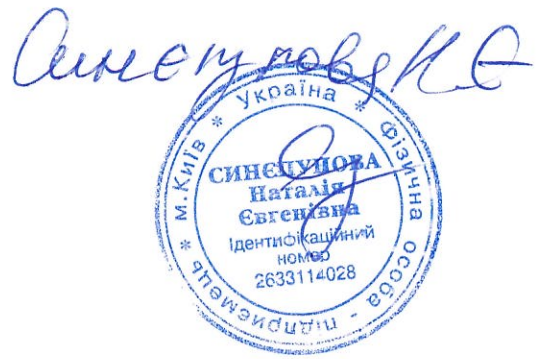 Синєпупова Н.Є
* Україна * Фізична особа - підприємець * м.Київ
СИНЄПУПОВА
Наталія
Євгенівна
Ідентифікаційний
номер
2633114028